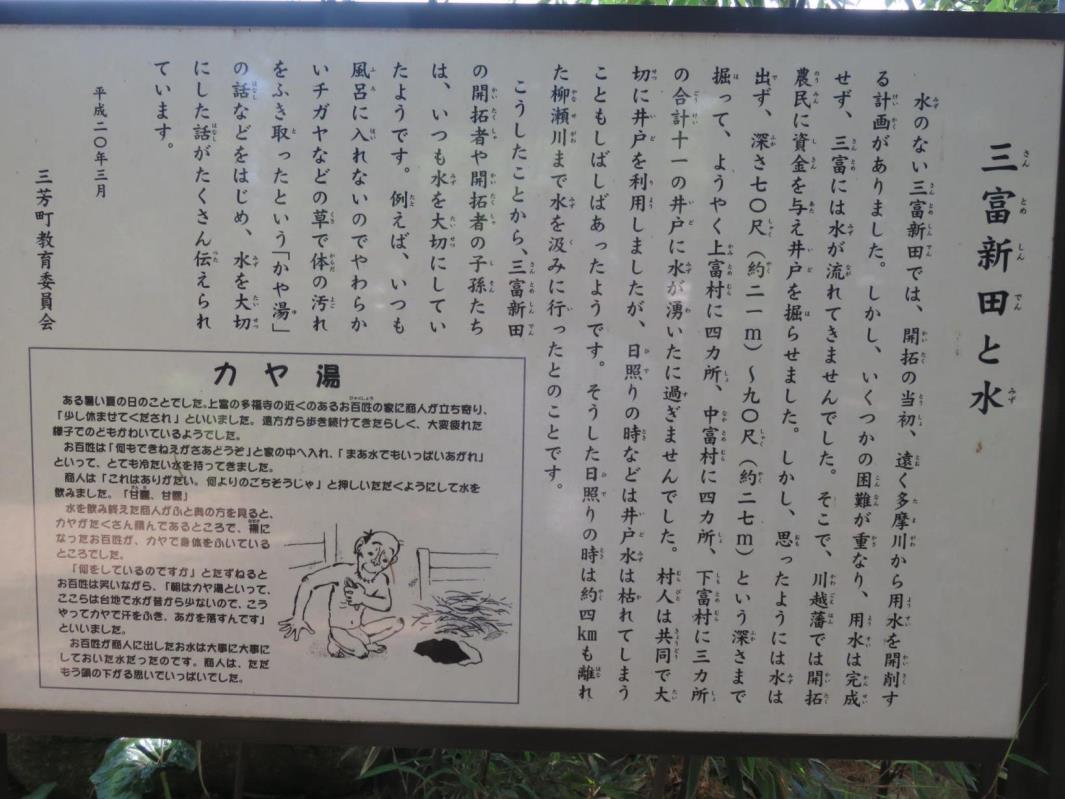 三富新田と水
水のない三富新田では、開拓の当初、遠く多摩川から用水を開削す
る計画がありました。しかし、いくつかの困難が重なり、用水は完成
せず、三富には水が流れてきませんでした。そこで、川越藩では開拓
農民に資金を与え井戸を掘らせました。しかし、思ったようには水は
出ず、深さ七〇尺（約二一m）～九〇尺（約二七m）という深さまで
掘って、ようやく上富村に四カ所、中富村に四カ所、下富村に三カ所
の合計十一の井戸に水が湧いたに過ぎませんでした。村人は共同で大
切に井戸を利用しましたが、日照りの時などは井戸水は枯れてしまう
こともしばしばあったようです。そうした日照りの時は約四㎞も離れ
た柳瀬川まで水を汲みに行ったとのことです。
こうしたことから、三富新田
の開拓者や開拓者の子孫たち
は、いつも水を大切にしてい
たようです。例えば、いつも
風呂に入れないのでやわらか
いチガヤなどの草で体の汚れ
をふき取ったという「かや湯」
の話などをはじめ、水を大切
にした話がたくさん伝えられ
ています。
平成二〇年三月
三芳町教育委員会
カヤ湯
ある暑い夏の日のことでした。上富の多福寺の近くのあるお百姓の家に商人が立ち寄り、
「少し休ませてくだされ」といいました。遠方から歩き続けてきたらしく、大変疲れた
様子でのどもかわいているようでした。
お百姓は「何もできねえがさあどうぞ」と家の中へ入れ、「まあ水でもいっぱいあがれ」
といって、とても冷たい水を持ってきました。
商人は「これはありがたい。何よりのごちそうじゃ」と押しいただくようにして水を
飲みました。「甘露、甘露」
水を飲み終えた商人がふと奥の方を見ると、
カヤがたくさん積んであるところで、裸に
なったお百姓が、カヤで身体をふいている
ところでした。
「何をしているのですか」とたずねると
お百姓は笑いながら、「朝はカヤ湯といって、
ここらは台地で水が昔から少ないので、こう
やってカヤで汗をふき、あかを落すんです」
といいました。
お百姓が商人に出したお水は大事に大事に
しておいた水だったのです。商人は、ただ
もう頭の下がる思いでいっぱいでした。